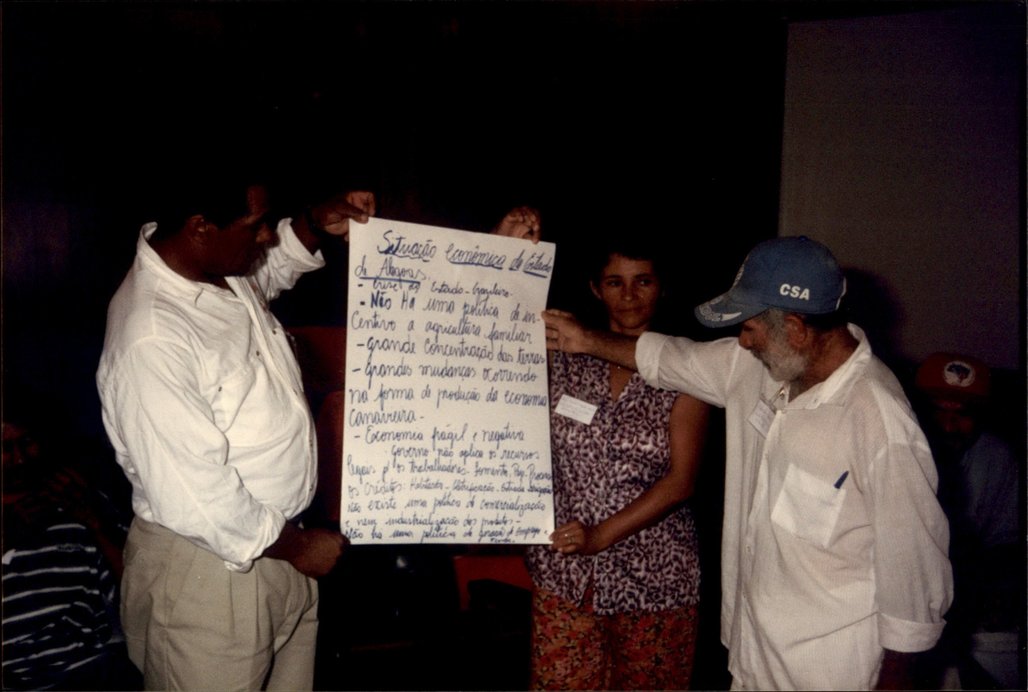 Situação econômica do Estado
de Alagoas.
- Crise do Estado - brasileiro -
- Não Há uma política de in-
Centivo a agricultura familiar
- grande Concentração das terras
- Grandes mudanças ocorrendo
na forma de produção da economia
Canavieira -
- Economia frágil e negativa
governo não aplica os recursos
legais p/ os trabalhadores - fomento, Pag. Procera
os Créditos: Habitação - Eletrificação - Estrada
Não existe uma política de comercialização
e nem industrialização dos produtos -
Não ha uma política de geração de Emprego
CSA